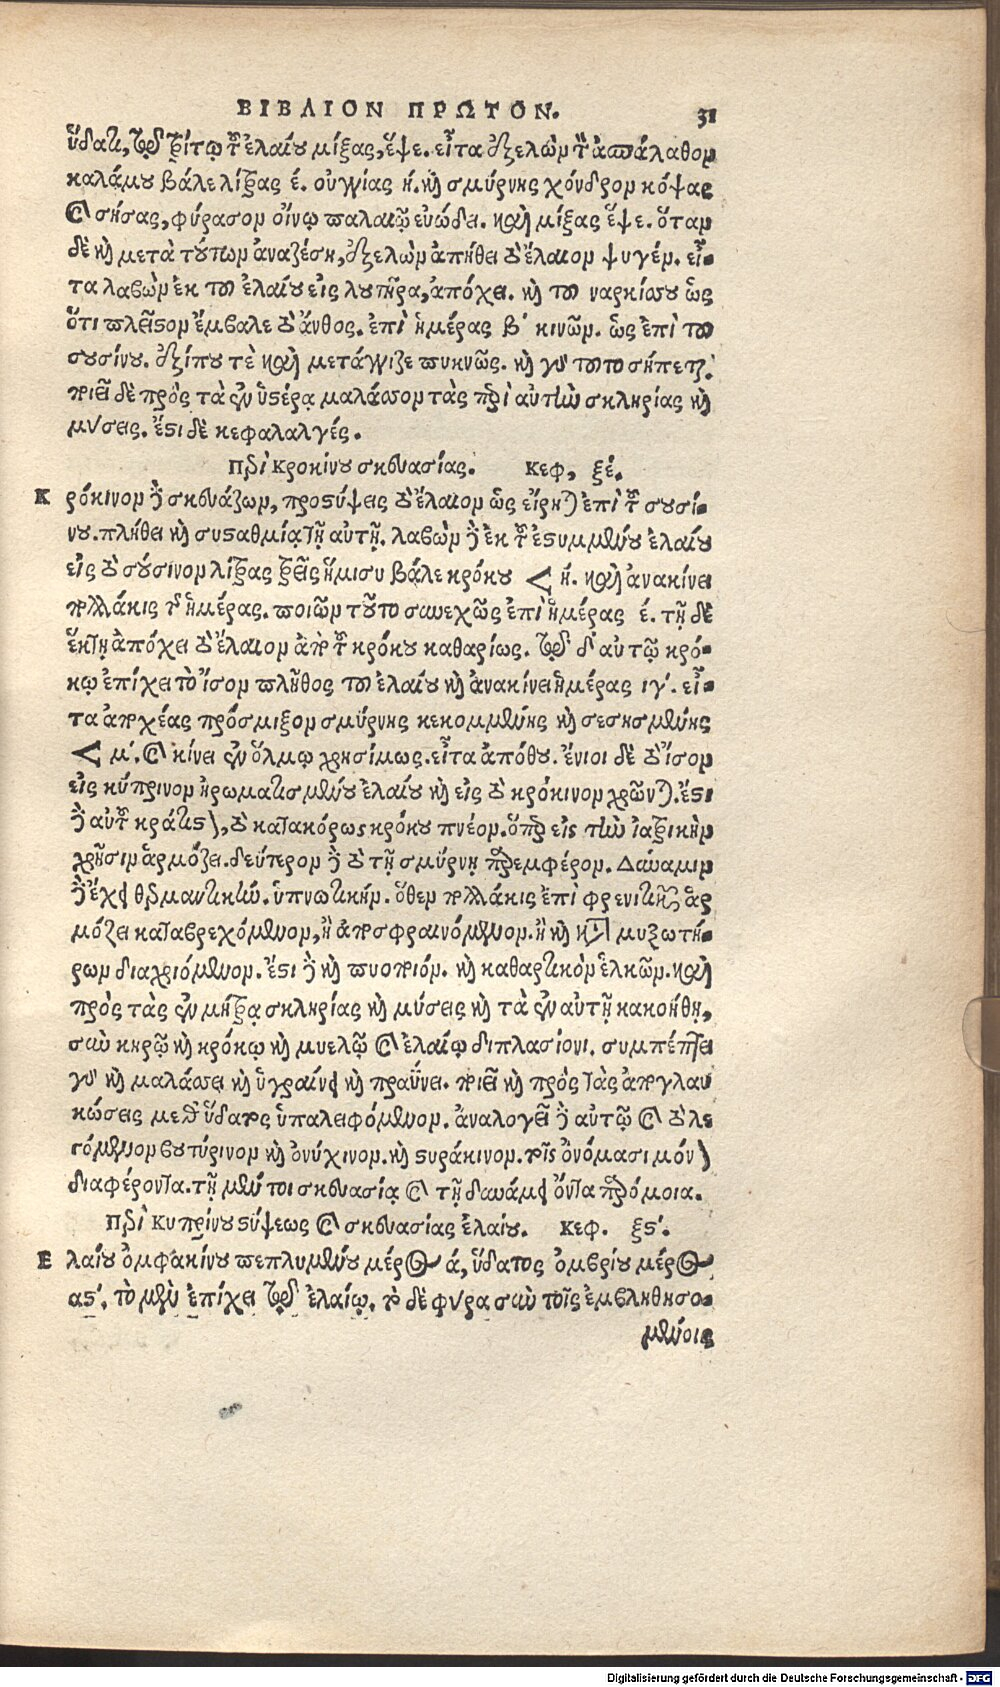 ΒΙΒΛΙΟΝ ΠΡΩΤΟΝ. 31
ὕδατι, τῷ τρίτῳ τοῦ ἐλαίου μίξας, ἕψε. εἶτα ἐξελὼν τὸν ἀσπάλαθον
καλάμου βάλε λίτρας έ. οὐγγίας ή. καὶ σμύρνης χόνδρον κόψας
καὶ σήσας, φύρασον οἴνῳ παλαιῷ εὐώδει. καὶ μίξας ἕψε. ὅταν
δὲ καὶ μετὰ τούτων ἀναζέσῃ, ἐξελὼν ἀπήθει τὸ ἔλαιον ψυγέν. εἶ-
τα λαβὼν ἐκ τοῦ ἐλαίου εἰς λυτῆρα, ἀπόχει. καὶ τοῦ ναρκίσσου ὡς
ὅτι πλεῖστον ἔμβαλε τὸ ἄνθος. ἐπὶ ἡμέρας β΄ κινῶν. ὡς ἐπὶ τοῦ
σουσίνου. ἐξίπου τὲ καὶ μετάγγιζε πυκνῶς. καὶ γὰρ τοῦτο σήπεται.
ποιεῖ δὲ πρὸς τὰ ἐν ὑστέρᾳ μαλάσσον τὰς περὶ αὐτὴν σκληρίας καὶ
μύσεις. ἔστι δὲ κεφαλαλγές.
Περὶ Κροκίνου σκευασίας. Κεφ, ξέ.
Κ ρόκινον δὲ σκευάζων, προστύψεις τὸ ἔλαιον ὡς εἴρηται ἐπὶ τοῦ σουσί-
νου. πλήθει καὶ συσταθμίᾳ τῇ αὐτῇ. λαβὼν δὲ ἐκ τοῦ ἐστυμμένου ἐλαίου
εἰς τὸ σούσινον λίτρας τρεῖς ἥμισυ βάλε κρόκου < ή. καὶ ἀνακίνει
πολλάκις τῆς ἡμέρας. ποιῶν τοῦτο συνεχῶς ἐπὶ ἡμέρας έ. τῇ δὲ
ἕκτῃ ἀπόχει τὸ ἔλαιον ἀπὸ τοῦ κρόκου καθαρίως. τῷ δ' αὐτῷ κρό-
κῳ ἐπίχει τὸ ἴσον πλῆθος τοῦ ἐλαίου καὶ ἀνακίνει ἡμέρας ιγ΄. εἶ-
τα ἀποχέας πρόσμιξον σμύρνης κεκομμένης καὶ σεσησμένης
< μ΄. καὶ κίνει ἐν ὅλμῳ χρησίμως. εἶτα ἀπόθου. ἔνιοι δὲ τὸ ἴσον
εἰς κύπρινον ἠρωματισμένου ἐλαίου καὶ εἰς τὸ κρόκινον χρῶνται. ἔστι
δὲ αὐτοῦ κράτιστον, τὸ κατακόρως κρόκου πνέον. ὅπερ εἰς τὴν ἰατρικὴν
χρῆσιν ἁρμόζει. δεύτερον δὲ τὸ τῇ σμύρνῃ παρεμφέρον. Δύναμιν
δὲ ἔχει θερμαντικὴν. ὑπνωτικήν. ὅθεν πολλάκις ἐπὶ φρενιτικῶν ἁρ
μόζει καταβρεχόμενον, ἢ ἀποσφραινόμενον. ἢ καὶ τῶν μυξωτή-
ρων διαχριόμενον. ἔστι δὲ καὶ πυοποιόν. καὶ καθαρτικὸν ἑλκῶν. καὶ
πρὸς τὰς ἐν μήτρᾳ σκληρίας καὶ μύσεις καὶ τὰ ἐν αὐτῇ κακοήθη,
σὺν κηρῷ καὶ κρόκῳ καὶ μυελῷ καὶ ἐλαίῳ διπλασίονι. συμπέπτει
γὰρ καὶ μαλάσσει καὶ ὑγραίνει καὶ πραΰνει. ποιεῖ καὶ πρὸς τὰς ἀπογλαυ
κώσεις μεθ' ὕδατος ὑπαλειφόμενον. ἀναλογεῖ δὲ αὐτῷ καὶ τὸ λε
γόμενον βουτύρινον καὶ ὀνύχινον. καὶ στυράκινον. τοῖς ὀνόμασι μόνον
διαφέροντα. τῇ μέν τοι σκευασίᾳ καὶ τῇ δυνάμει ὄντα παρόμοια.
Περὶ Κυπρίνου στύψεως καὶ σκευασίας ἐλαίου. Κεφ. ξϛ΄.
Ε λαίου ὀμφακίνου πεπλυμένου μέρος ά, ὕδατος ὀμβρίου μέρος
αϛ΄. τὸ μὲν ἐπίχει τῷ ἐλαίῳ. τὸ δὲ φύρα σὺν τοῖς ἐμβληθησο-
μένοις
Digitalisierung gefördert durch die Deutsche Forschungsgemeinschaft - DFG